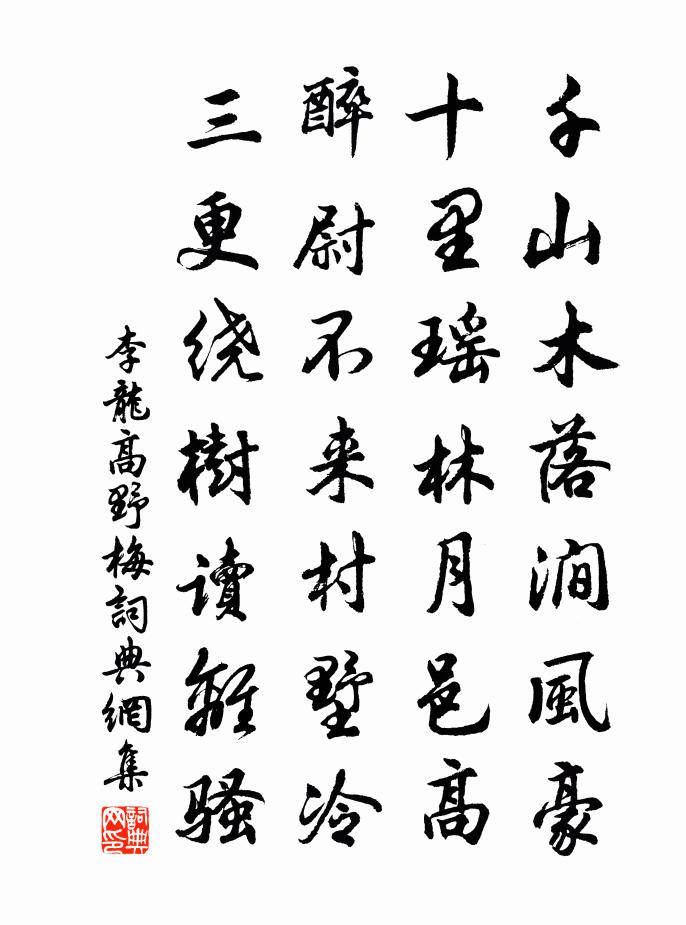 千山木落澗風豪
十里瑶林月邑高
醉尉不来村墅冷
三更绕樹读離骚
李龍高野梅詞典網集
詞典网印